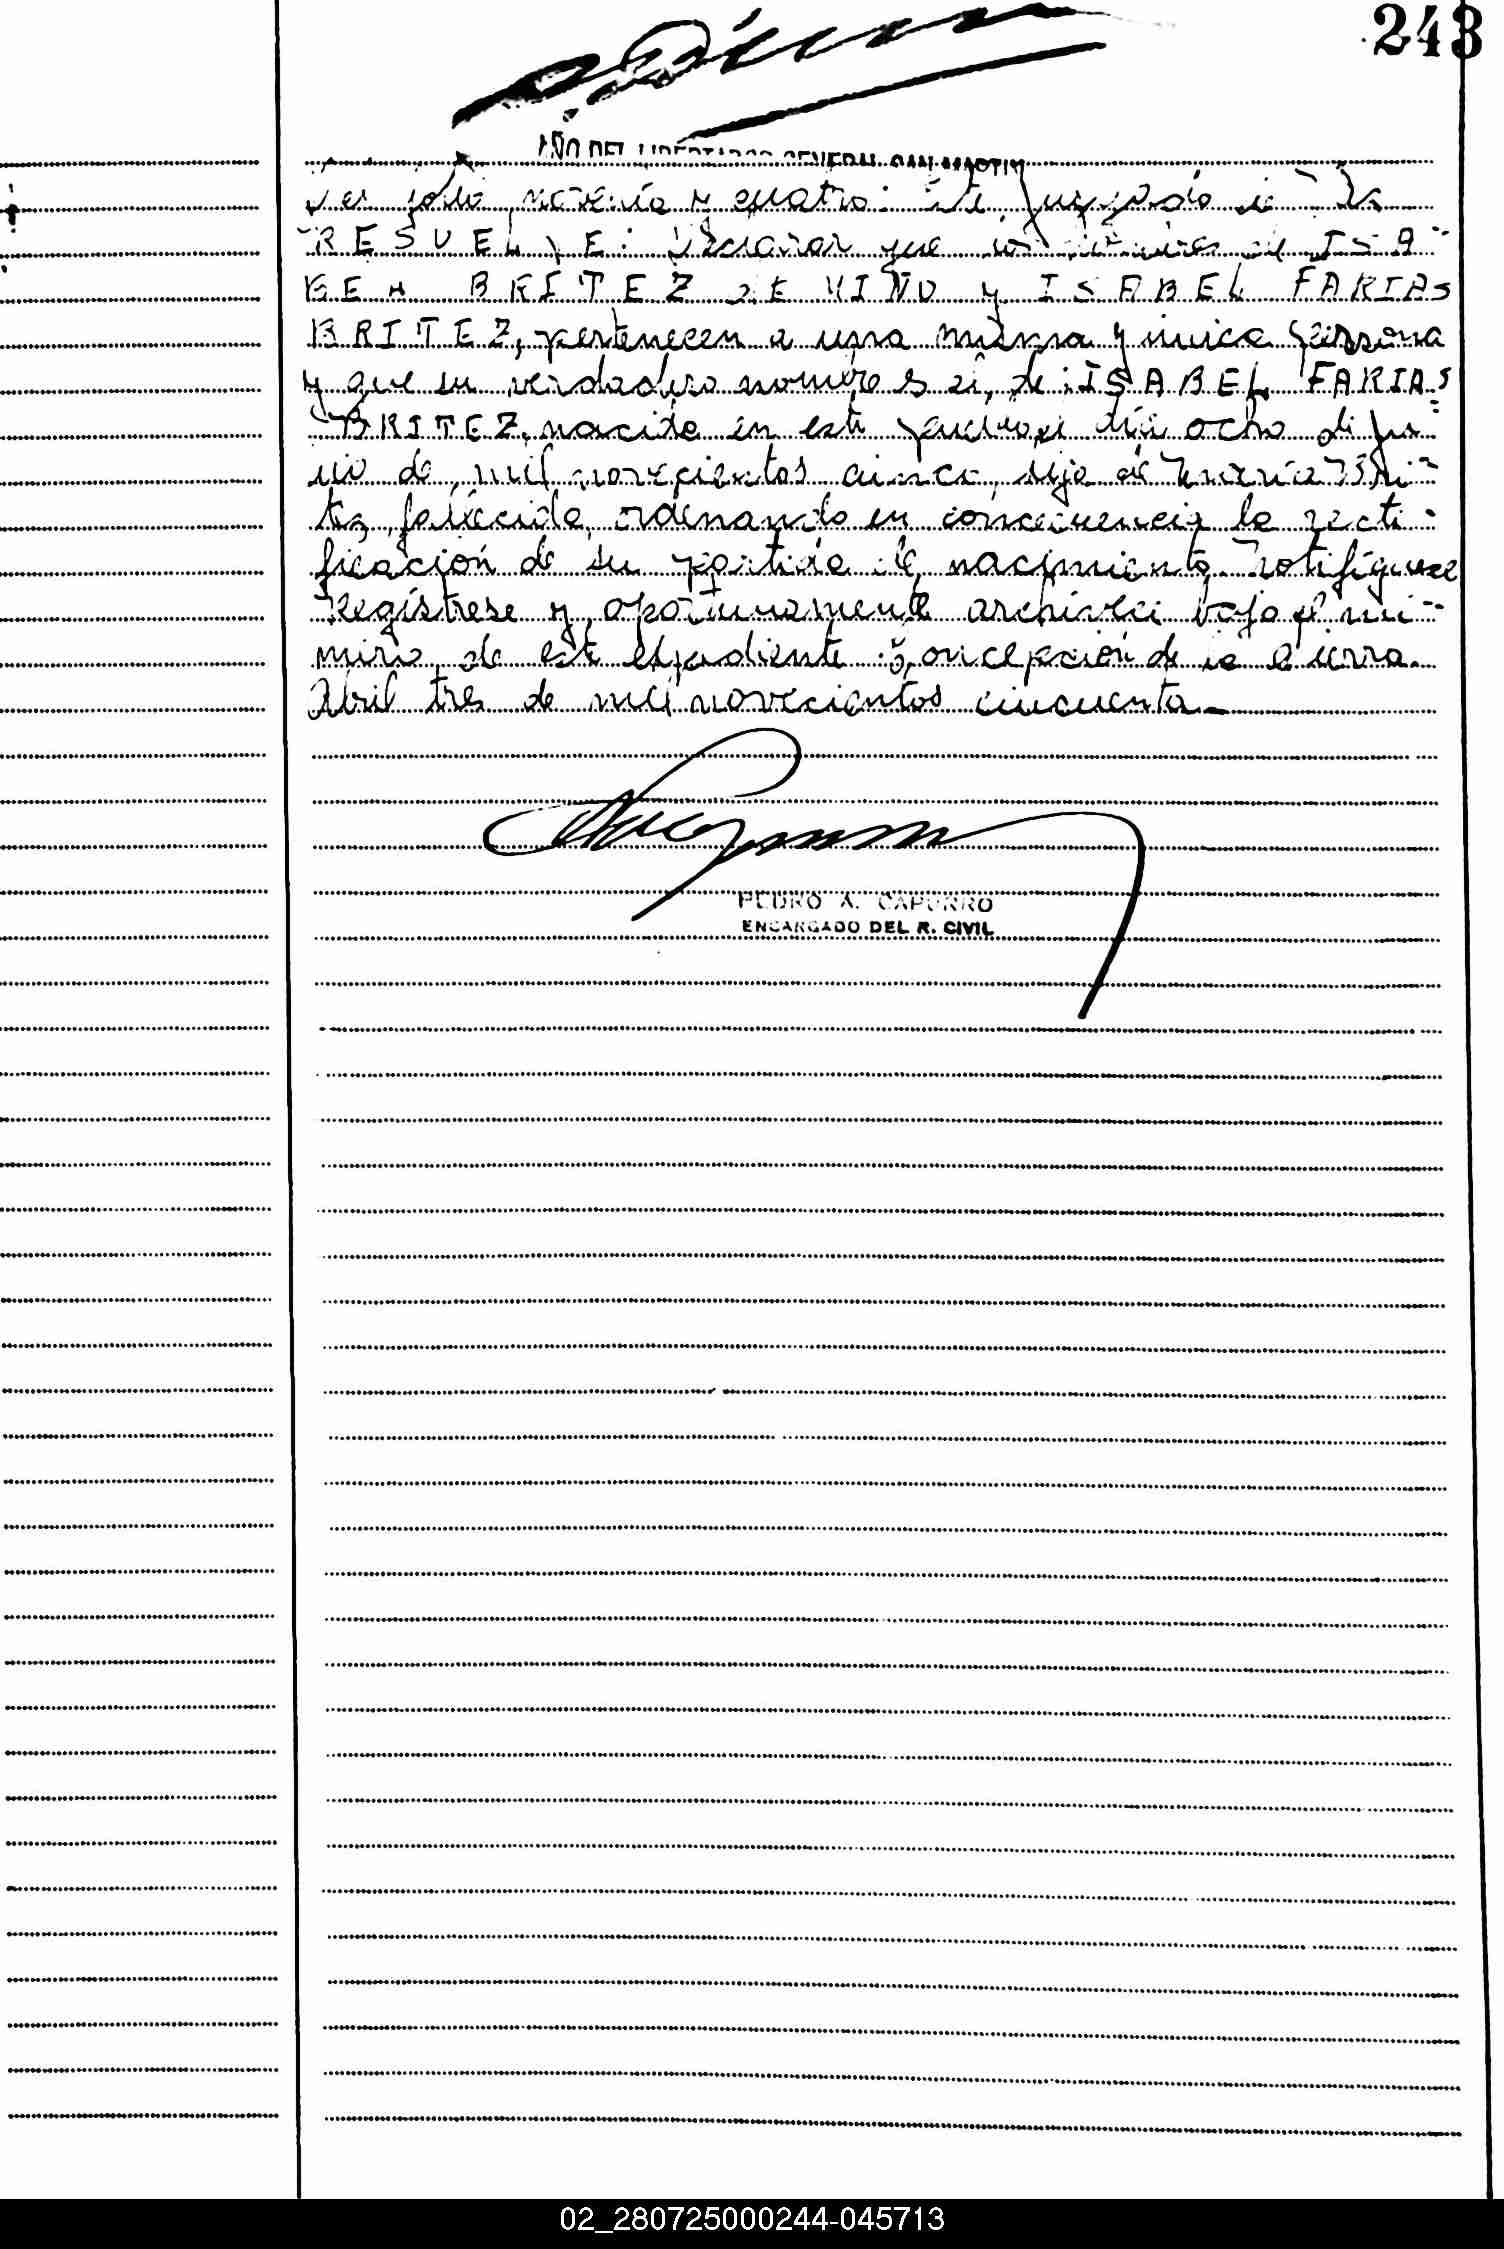 243
AÑO DEL LIBERTADOR GENERAL SAN MARTIN
noventa y cuatro: Este Juzgado de
RESUELVE: Declarar que los nombres de ISA-
BEL BRITEZ DE MIÑO y ISABEL FARIAS
BRITEZ, pertenecen a una misma y unica persona
y que su verdadero nombre es el de: ISABEL FARIAS
BRITEZ, nacida en este pueblo el día ocho de ju-
nio de mil novecientos cinco, hija de Maria Bri-
tez, fallecida, ordenando en consecuencia la recti-
ficación de su partida de nacimiento. Notifiquese
Registrese y oportunamente archivese bajo el nú-
mero de este expediente. Concepción de la Sierra.
Abril tres de mil novecientos cincuenta.-
PEDRO A. CAPURRO
ENCARGADO DEL R. CIVIL
02_280725000244-045713